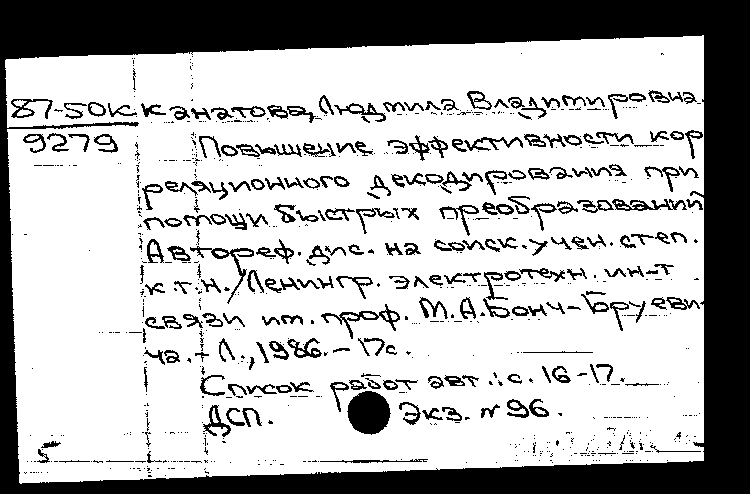 87-50К Канатова, Людмила Владимировна.
9279 Повышение эффективности кор
реляционного декодирования при
помощи быстрых преобразований
Автореф. дис. на соиск. учен. степ.
к.т.н./Ленингр. электротехн. ин-т
связи им. проф. М.А.Бонч-Бруеви-
ча. - Л., 1986. - 17с.
Список работ авт.: с. 16-17.
ДСП. Экз. № 96.
5